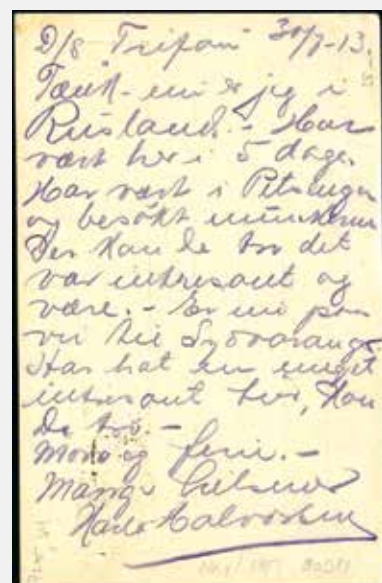 D/S Trifon 30/7-13.
Tænk - nu er jeg i
Rusland. - Har
vært her i 5 dage.
Har vært i Petsenga
og besøkt munkerne
Der kan De tro det
var intresant og
være. - Er nu paa
vei til Sydvaranger
Har hat en meget
intresant tur, kan
De tro. -
Moro og ferie. -
Mange hilsener